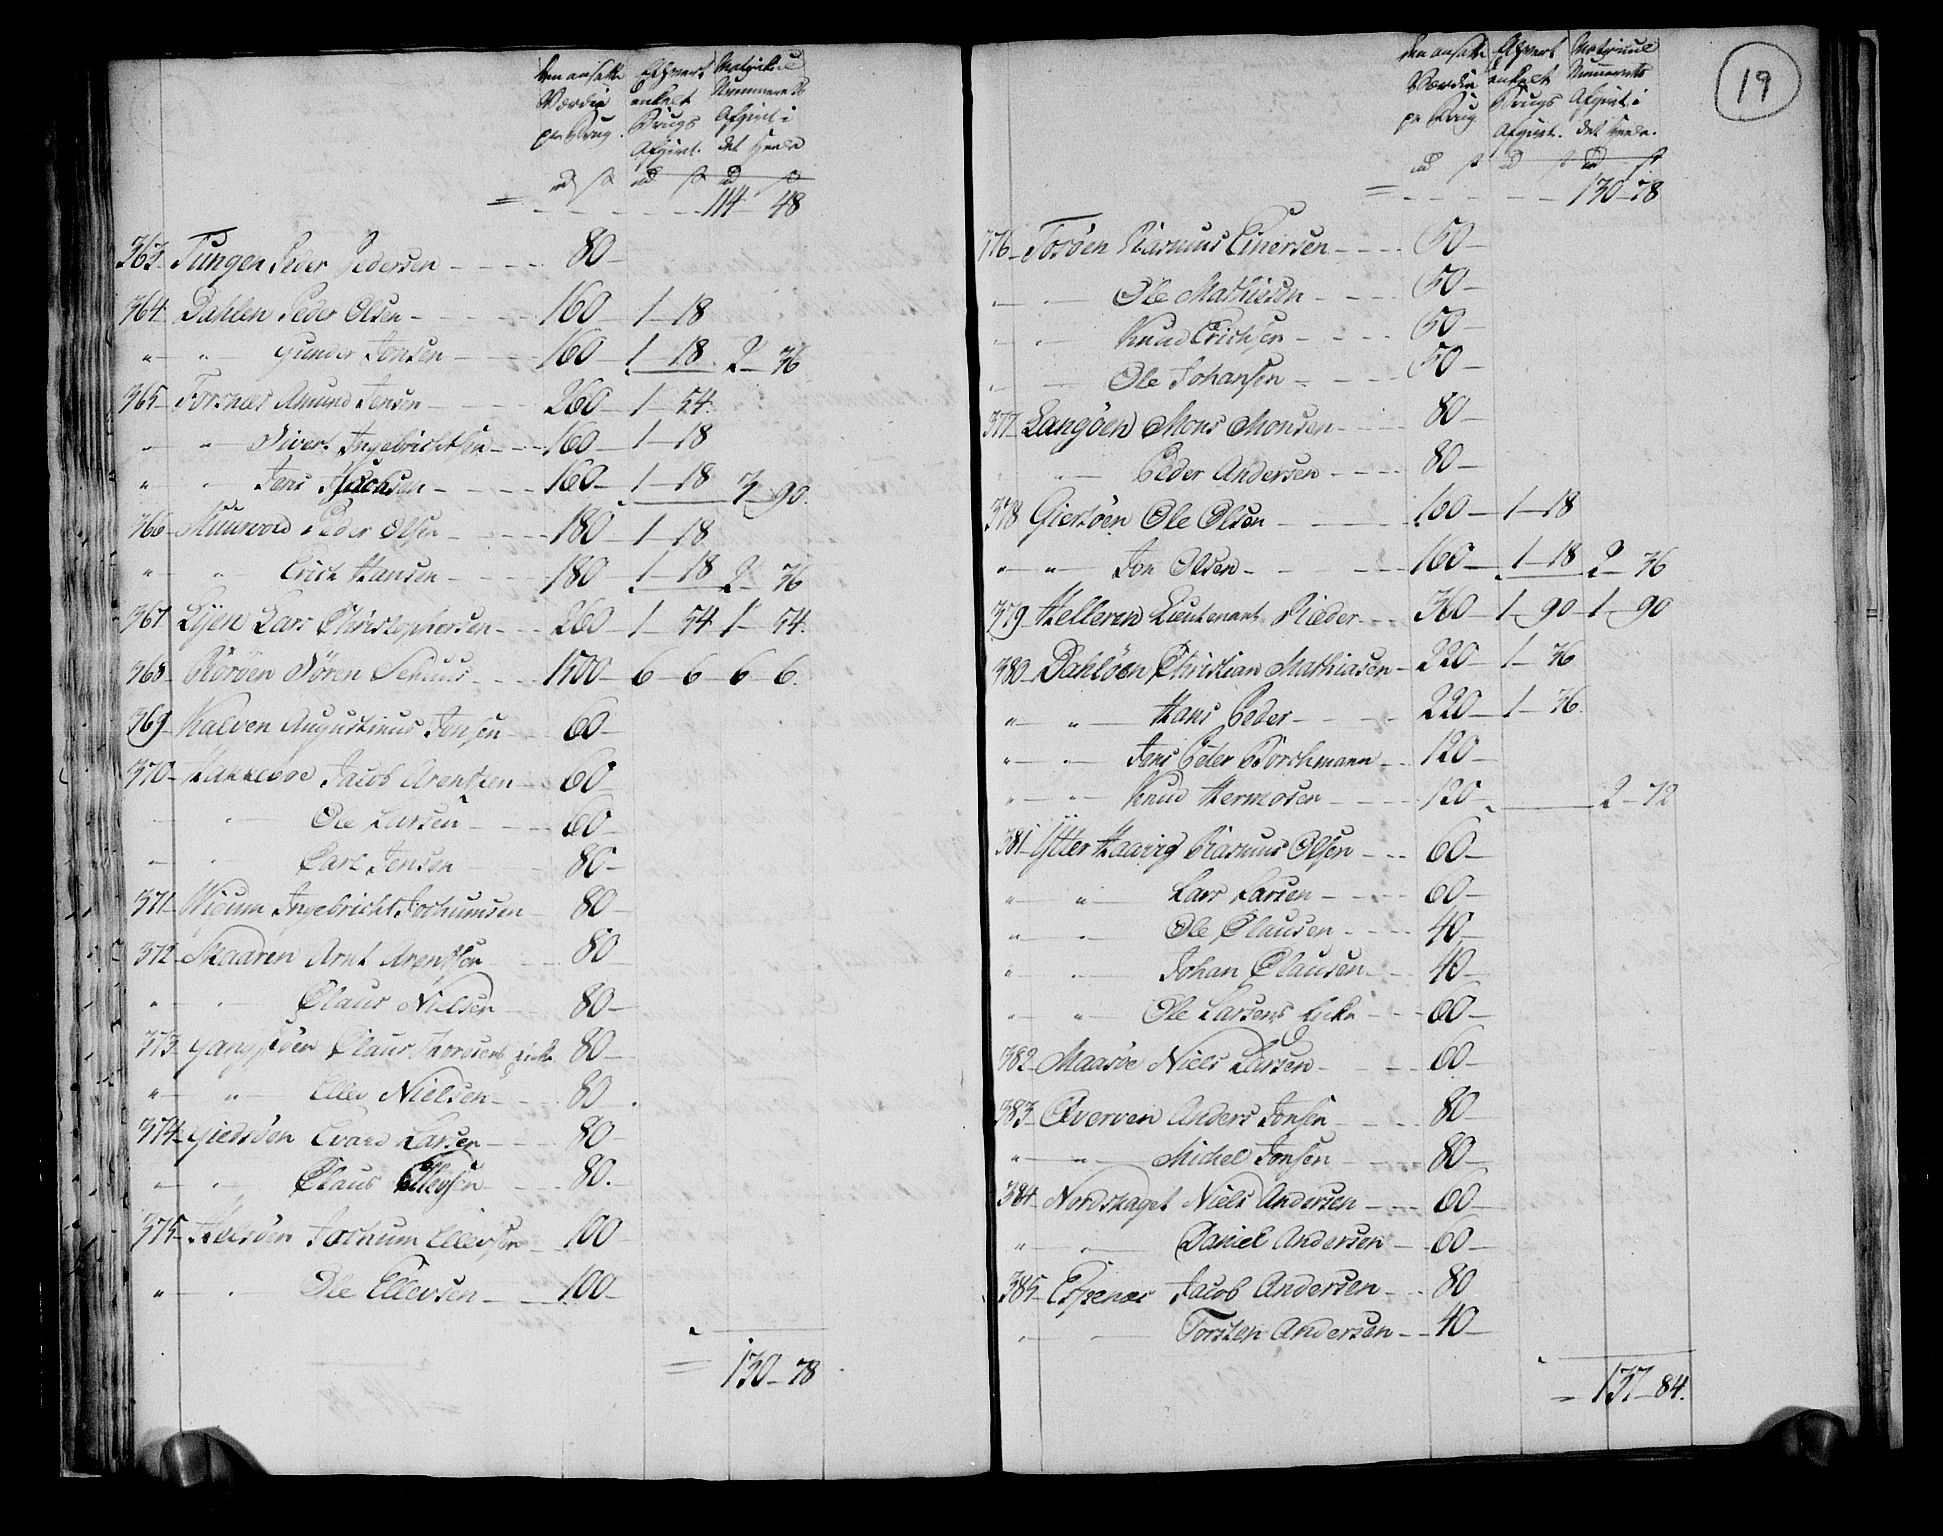 den ansatte Ethvert Matrikul
Værdie enkelt Nummerets
pr Brug. Brugs Afgivt i
Afgivt. det Heele
114 - 48
363 - Tungen Peder Pedersen - 80 -
364 - Dahlen Peder Olsen - 160 - 1 - 18
" - " - Gunder Jonsen - 160 - 1 - 18. 2 - 36
365 - Forsnæs Amund Jensen - 260 - 1 - 54.
" - " - Sivert Ingebrichtsen - 160 - 1 - 18
" - " - Jens - 160 - 1 - 18 3 - 90.
366 - Muurvold Peder Olsen - 180 - 1 - 18
" " Erich Hansen - 180 - 1 - 18 2 - 36
367 - Lyen Lars Christophersen - 260 - 1 - 54 1 - 54.
368 - Rørøen Søren Schuus - 1500 - 6 - 6 - 6 - 6.
369 - Kalven Augustinus Jonsen - 60 -
370 - Hakkeboe Jacob Arentsen - 60 -
" - Ole Larsen - 60 -
" - " Carl Jensen - 80 -
371 - Wigum Ingebricht Jochumsen - 80 -
372 - Skaaren Arnt Arentsen - 80 -
" - " - Claus Nielsen - 80 -
373 - Gangstøen Claus Thordsens Enke 80 -
" - " - Ellev Nielsen - 80 -
374 - Giedsøen Evard Larsen - 80 -
" - " Claus Ellevsen - 80. -
375 - Helsøen Jochum Ellevsen - 100 -
" - " Ole Ellevsen - 100 -
= 130 - 78
19
den ansatte Ethvert Matricul
Værdie enkelt Nummerets
pr Brug Brugs Afgivt i
Afgivt. det Heele.
= 130 - 78
376 - Tosøen Rasmus Einersen - 50 -
" - " - Ole Mathiesen - 50 -
" - " - Knud Erichsen - 50 -
" - Ole Johansen - 50 -
377 - Langøen Mons Monsen - 80 -
" - Peder Andersen - 80 -
378 Giersøen Ole Olsen - 160 - 1 - 18
" - " - Jon Olsen - 160 - 1 - 18 - 2 - 36
379 - Helleren Lieutenant Ræder - 360 - 1 - 90 - 1 - 90
380 - Dahløen Christian Mathiasen - 220 - 1 - 36
" - " - Hans Peder - 220 - 1 - 36.
" - " - Jens Peter Borchmann - 120 -
" - " - Knud Hermosen - 120 - 2 - 72
381 - Ytter Haavig Rasmus Olsen - 60 -
" - " - Lars Larsen - 60 -
" - " - Ole Clausen - 40 -
" - " - Johan Clausen - 40 -
" - " - Ole Larsens Enke - 60 -
382 - Maasøe Niels Larsen - 60 -
383 - Qverven Anders Jonsen - 80
" - " - Michel Jonsen - 80 -
384 - Nordskaget Niels Andersen - 60 -
" - " - Daniel Andersen - 60 -
385 - Espenæs Jacob Andersen - 80
" - Torsten Andersen - 40 -
= 137 - 84.